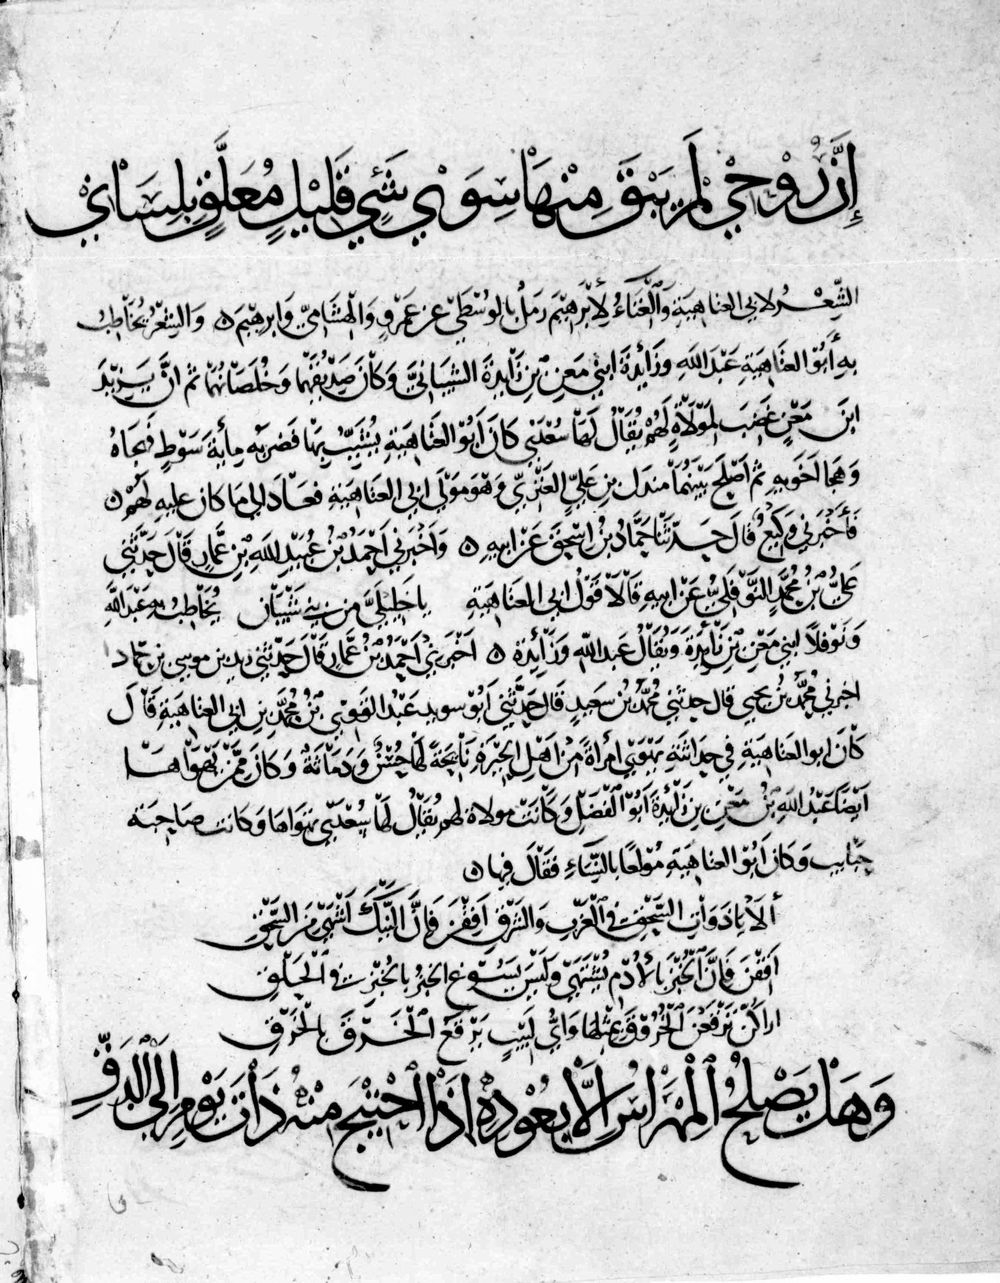 إِنَّ رُوْحِيْ لَمْ يَبْقَ مِنْهَا سِوَىْ شَيْءٍ قَلِيْلٍ مُعَلَّقٍ بِلِسَانِيْ
الشِّعْرُ لابي العتاهية وَالْغِنَاءُ لِأِبْرَاهِيْمَ رَمَلٌ بالوُسْطَىْ عن عَمْرٍو وَالْهشَامِيِّ وَابرهِيْمَ ه وَالشِعْرُ يُخَاطِبُ
بِهِ أَبُوْ العتَاهيَةِ عَبْدَ اللَّهِ وَزَائِدةَ ابنَيْ مَعْنِ بْنِ زَايدةَ الشيبَانيَّ وَكَانَ صَدِيْقَهُمَا وَخُلْصَانَهُمَا ثم انَّ يَزِيْدَ
ابنَ مَعْنٍ غَضِبَ لِمَوْلَاةٍ لَهُمْ يُقَالُ لَهَا سُعْدَىْ كَانَ أَبُوْ العتَاهِيَةِ يُشَبِّبُ بِهَا فَضَربَه مِايةَ سَوْطٍ فَهجَاهُ
وَهَجَا اخَوَيْهِ ثُمَّ اَصْلَحَ بَيْنَهُمَا مندَل بن عَلِيٍّ العَنَزِيّ وَهوَ مَوْلَى ابي العتاهيَةِ فعَادَ الى ما كان عليهِ لهُمْ ه
فَأَخْبَرني وَكِيْعٌ قَالَ حَدّثَنَا حَمَّادُ بنُ اسْحَقَ عَنْ ابيهِ ه وَاَخْبَرني اَحْمَدُ بْنُ عُبَيْدِ اللَّهِ بْنِ عَمَّارٍ قَالَ حَدّثَنِيْ
عَلِيُّ بْنُ مُحَمَّدٍ النَّوْفَلِيُّ عَنْ ابيهِ قَالَا قَوْلُ ابي العتَاهِيَةِ يا خليليَّ من بني شَيْبَان يُخَاطِبُ بِهِ عَبْدَ اللَّهِ
وَنَوْفلاً ابني مَعْنِ بْنِ زَأيدَةَ وَيُقَالُ عَبدَ اللَّهِ وَزَأئدةَ ه اَخْبَرني اَحْمَدُ بْنُ عَمَّارٍ قَالَ حَدّثَنِيْ زيد بن موسى بن حماد
اخبرني مُحَمَّدُ بْنُ يحيى قال حدثني مُحَمَّدُ بْنُ سَعِيدٍ قَالَ حَدّثَنِيْ اَبُوْ سويدٍ عَبْدُ القَوِيِّ بْنُ مُحَمَّدِ بنِ ابي العتاهِيَةِ قَالَ
كَانَ ابو العتَاهيَةِ في حَدَاثَتِهِ يَهْوَىْ امرأةً مِنْ اَهْلِ الحِيْرَةِ نَايحَةً لَهَا حُسْنٌ وَدَمَاثَةٌ وَكانَ مِمَّنْ يَهْواهَا
اَيضًا عَبْدُ اللَّهِ بْنُ مَعْنِ بنِ زَائِدةَ اَبُوْ الْفَضْلِ وَكَانَتْ مولاةً لهمْ يُقَالُ لَهَا سُعْدَىْ يَهوَاهَا وَكانت صَاحِبَةَ
حبَايب وَكانَ اَبُوْ العتاهيَةِ مُوْلعًا بالنِّسَاءِ فَقَالَ فيها ه
أَلَا يا ذَوَاتِ السَّحْقِ في الْغَرْبِ وَالشَّرْقِ اَفِقْنَ فَإِنَّ النَّيْكَ اَشْهَىْ من السَّحْقِ
اَفقْنَ فَإِنَّ الْخُبْزَ بالأُدْمِ يُشْتَهَىْ وَلَيْسَ يَسُوْغُ الخبزُ بالخُبْزِ في الْحَلْقِ
اراكُنَّ تَرْقَعْنَ الْخُرُوْقَ بمثْلِهَا وَايُّ لَبِيْبٍ يَرْقَعُ الْخَرْقَ بالْخَرْقِ
وَهَلْ يَصْلُحُ الْمِهْرَاسُ إِلَّا بِعُوْدِهِ إِذَا احْتِيْجَ مِنْهُ ذَاتَ يَوْمٍ إِلَى الدَّقِّ